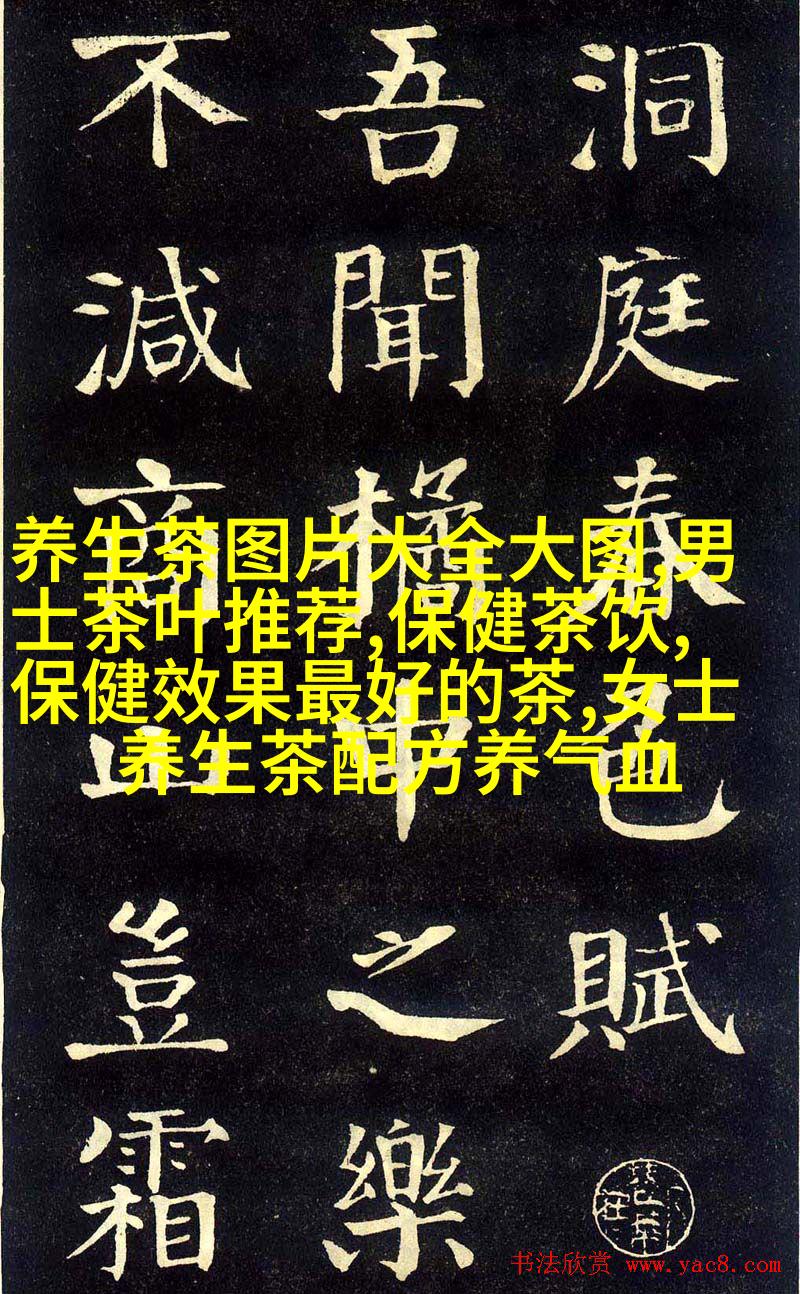 洞庭春色賦
吾聞橘中之樂
不減商山豈霜
养生茶图片大全大图,男
士茶叶推荐,保健茶饮,
保健效果最好的茶,女士
养生茶配方养气血
书法欣赏 www.yac8.com